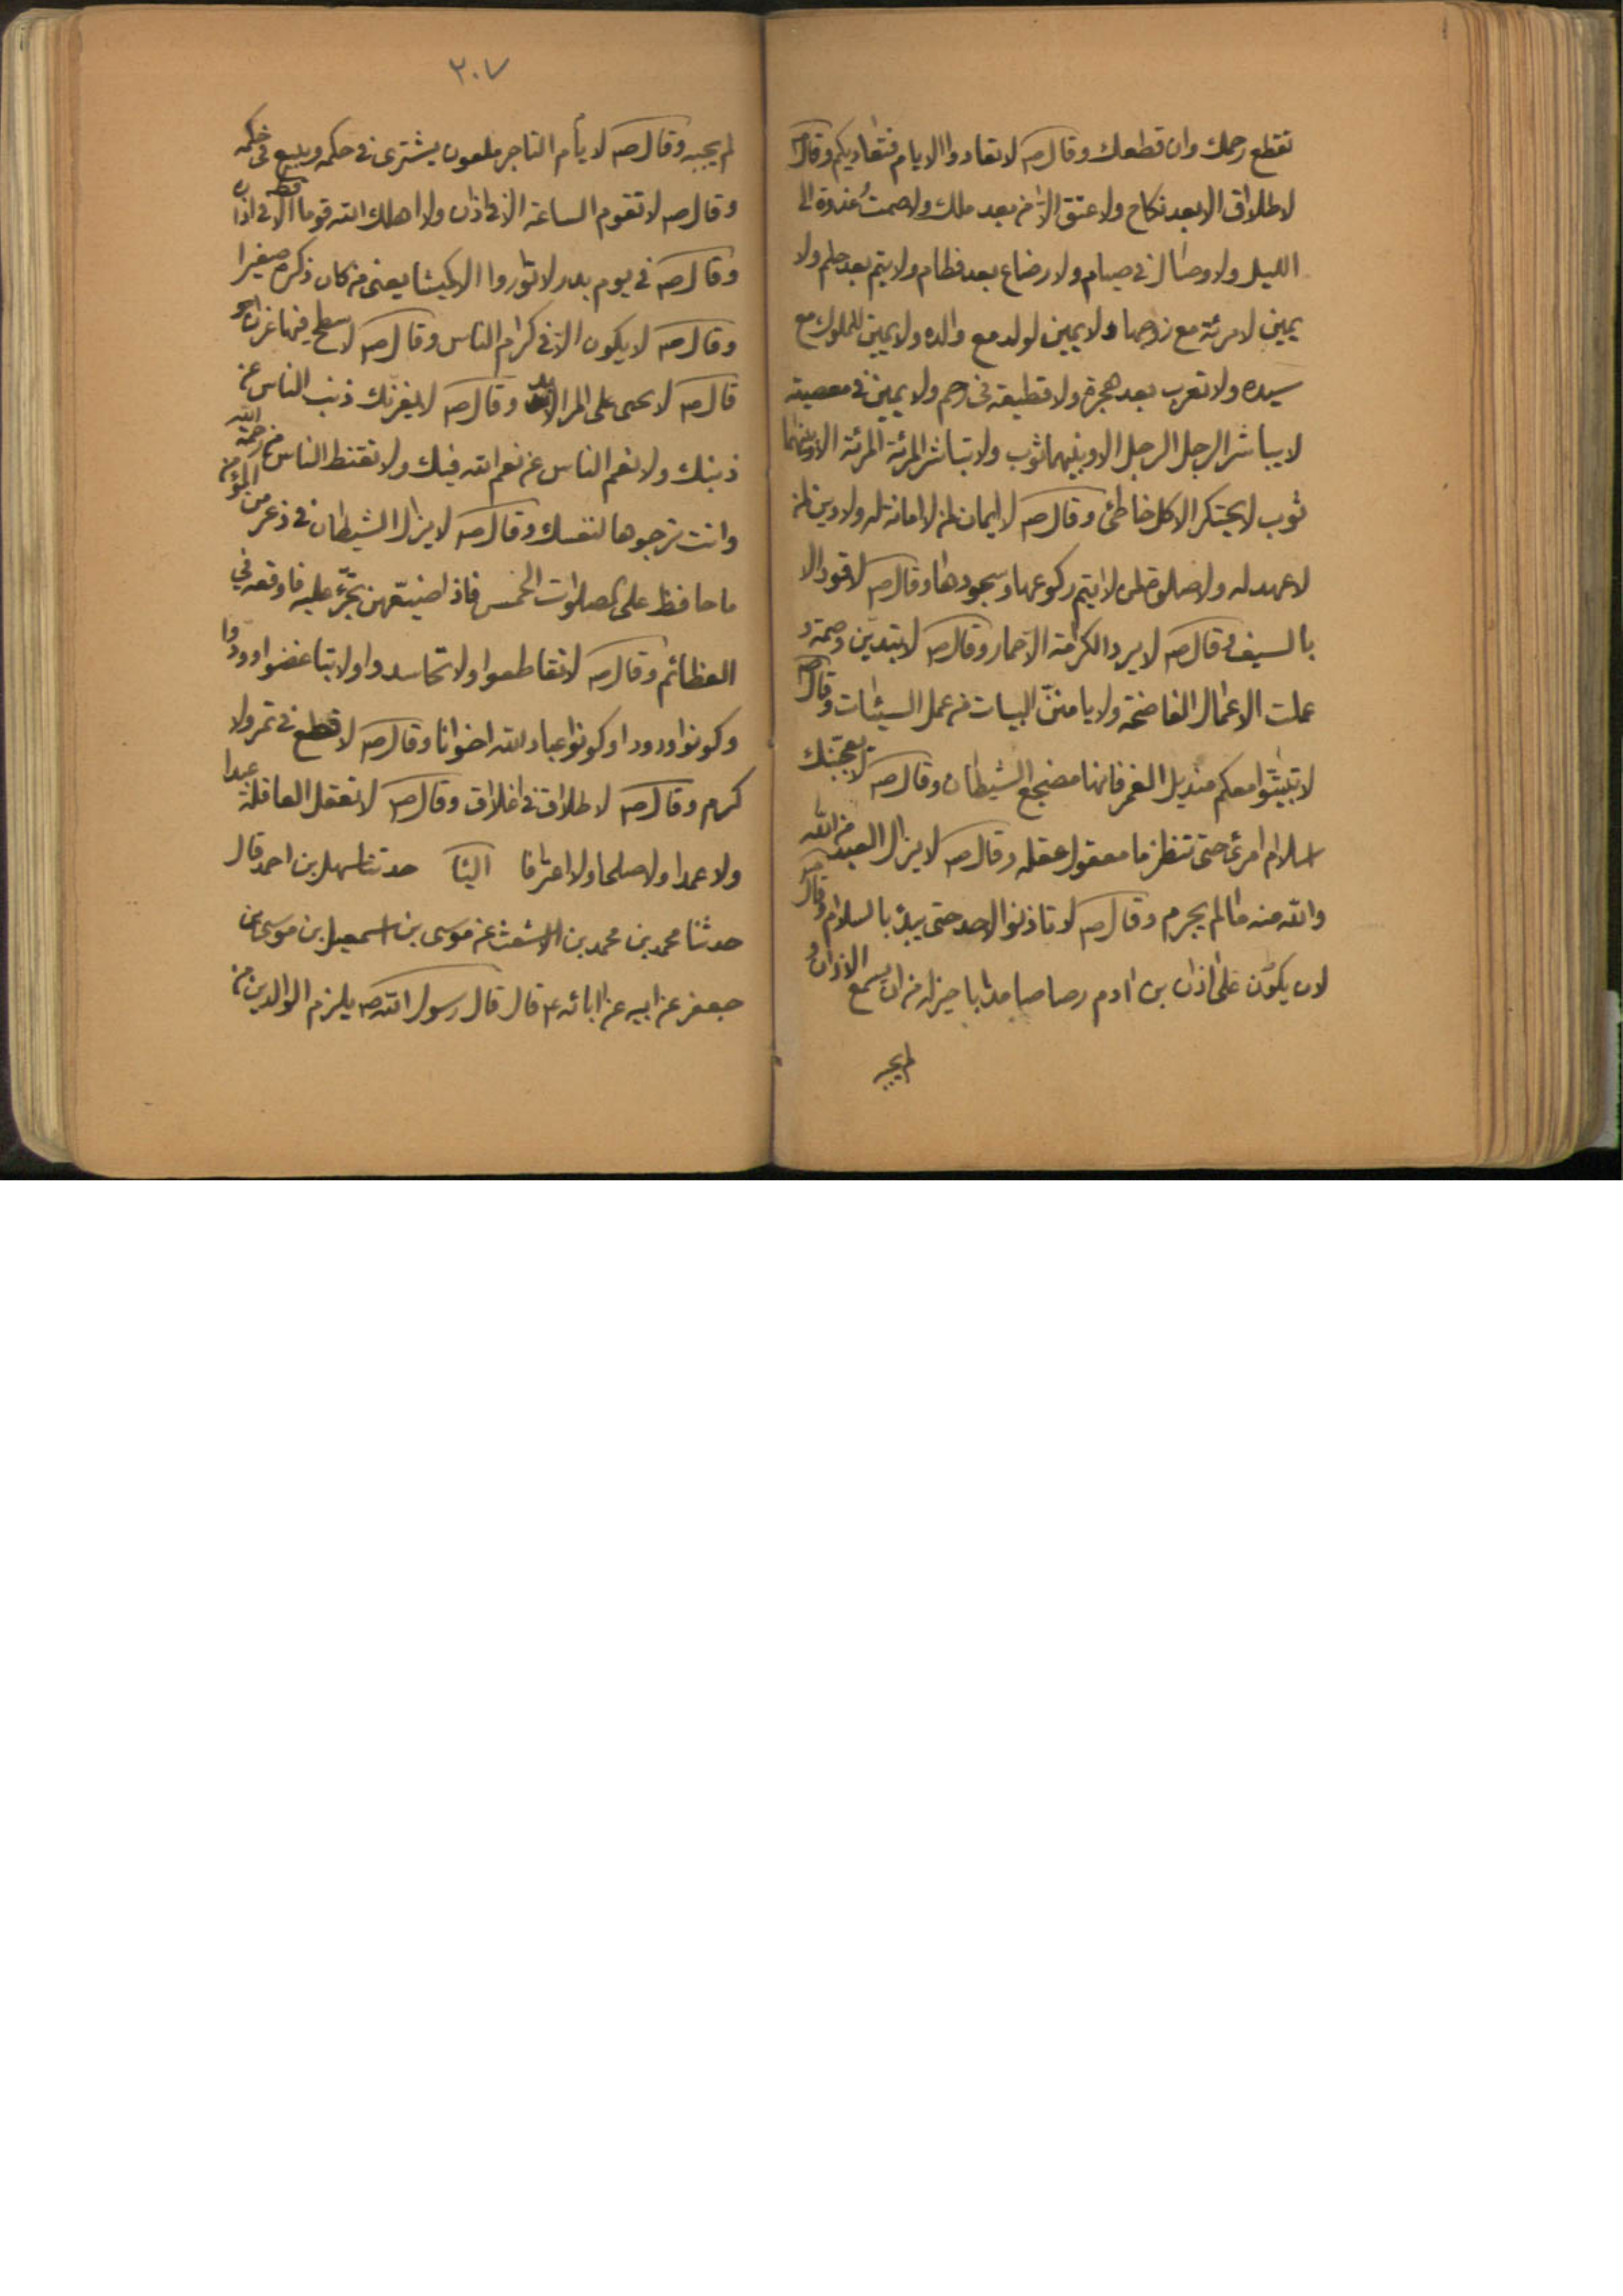 تقطع رحمك وان قطعك وقال صه لا تعادوا الايام فتعاديكم وقال صه
لا طلاق الا بعد نكاح ولا عتق الا من بعد ملك ولا صمت غدوة الى
الليل ولا وصال في صيام ولا رضاع بعد فطام ولا يتم بعد حلم ولا
يمين لامرئة مع زوجها ولا يمين لولد مع والده ولا يمين للمملوك مع
سيده ولا تعرب بعد هجرة ولا قطيعة في رحم ولا يمين في معصية
لا يباشر الرجل الرجل الا وبينهما ثوب ولا تباشر المرئة المرئة الا وبينهما
ثوب لا يحتكر الا كل خاطئ وقال صه لا ايمان لمن لا امانة له ولا دين لمن
لا عهد له ولا صلوة لمن لا يتم ركوعها وسجودها وقال صه لا قود الا
بالسيف وقال صه لا يرد الكرامة الا حمار وقال صه لا
عملت الاعمال الفاضحة ولا يامنن البيات من عمل السيئات وقال صه
لا تبيتوا معكم منديل الغمر فانها مضجع الشيطان وقال صه لا يعجبنك
اسلام امرئ حتى تنظر ما معقول عقله وقال صه لا يزال العبد من الله
والله منه ما لم يجرم وقال صه لا تاذنوا لاحد حتى يبدء بالسلام وقال صه
لان يكون على اذان بن ادم رصاصا مذابا خير له من ان يسمع الاذان و
لم يجبه
٢٠٧
لم يجبه وقال صه لا يأم التاجر ملعون يشترى في حكمه ويبيع في حكمه
وقال صه لا تقوم الساعة الا في اذان ولا اهلك الله قوما قط الا في اذان
وقال صه في يوم بدر لا تواروا الا كميشا يعنى من كان ذكره صغيرا
وقال صه لا يكون الا في كرام الناس وقال صه لا
قال صه لا وقال صه لا يغرنك ذنب الناس عن
ذنبك ولا نعم الناس عن نعم الله فيك ولا تقنط الناس من رحمة الله
وانت ترجوها لنفسك وقال صه لا يزال الشيطان في ذعر من المؤمن
ما حافظ على الصلوات الخمس فاذا ضيعهن تجرّء عليه فاوقعه في
العظائم وقال صه لا تقاطعوا ولا تحاسدوا ولا تباغضوا
وكونوا وكونوا عباد الله اخوانا وقال صه لا قطع في ثمر ولا
كرم وقال صه لا طلاق في اغلاق وقال صه لا تعقل العاقلة عبدا
ولا عمدا ولا صلحا ولا اعترافا حدثنا سهل بن احمد قال
حدثنا محمد بن محمد بن الاشعث عن موسى بن اسمعيل بن موسى بن
جعفر عن ابيه عن ابائه ع قال قال رسول الله صه يلزم الوالدين من